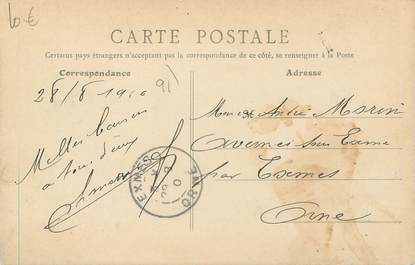 10-€
CARTE POSTALE
Certains pays étrangers n'acceptant pas la correspondance de ce côté, se renseigner à la Poste
Correspondance
Adresse
28/8 19
91
Mme André Morin
Avernes sous Exmes
par Exmes
Orne
Milles baisers
a tous deux
EXMES
ORNE